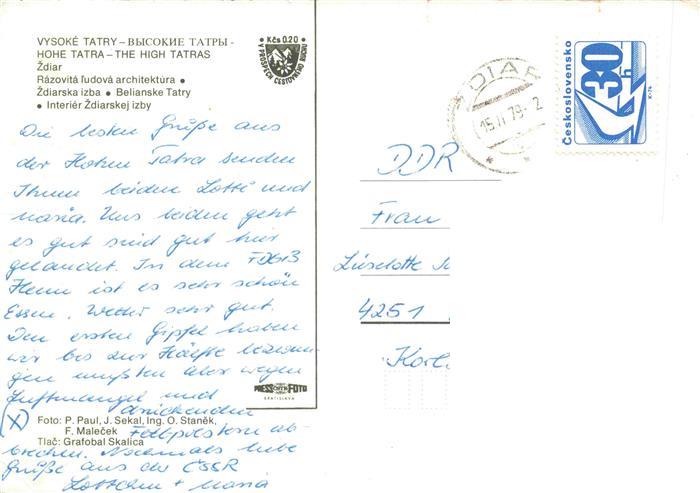 VYSOKÉ TATRY – ВЫСОКИЕ ТАТРЫ -
HOHE TATRA – THE HIGH TATRAS
Ždiar
Rázovitá ľudová architektúra •
Ždiarska izba • Belianske Tatry
• Interiér Ždiarskej izby
• Kčs 0.20 •
V PROSPECH CESTOVNÉHO RUCHU
Die besten Grüße aus
der Hohen Tatra senden
Ihnen beiden Lotti und
Maria. Uns beiden geht
es gut sind gut hier
gelandet. In dem FDGB
Heim ist es sehr schön
Essen, Wetter sehr gut.
Den ersten Gipfel haben
wir bis zur Hälfte bezwun-
gen mußten aber wegen
Luftmangel und
drückenden
(X)
Fettpolstern ab-
brechen. Nochmals liebe
Grüße aus der ČSSR
Lottchen + Maria
Foto: P. Paul, J. Sekal, Ing. O. Staněk,
F. Maleček
Tlač: Grafobal Skalica
PRESSFOTO
BRATISLAVA
DIAR
15.II.79-2
Československo
30 h
DDR
Frau
4251